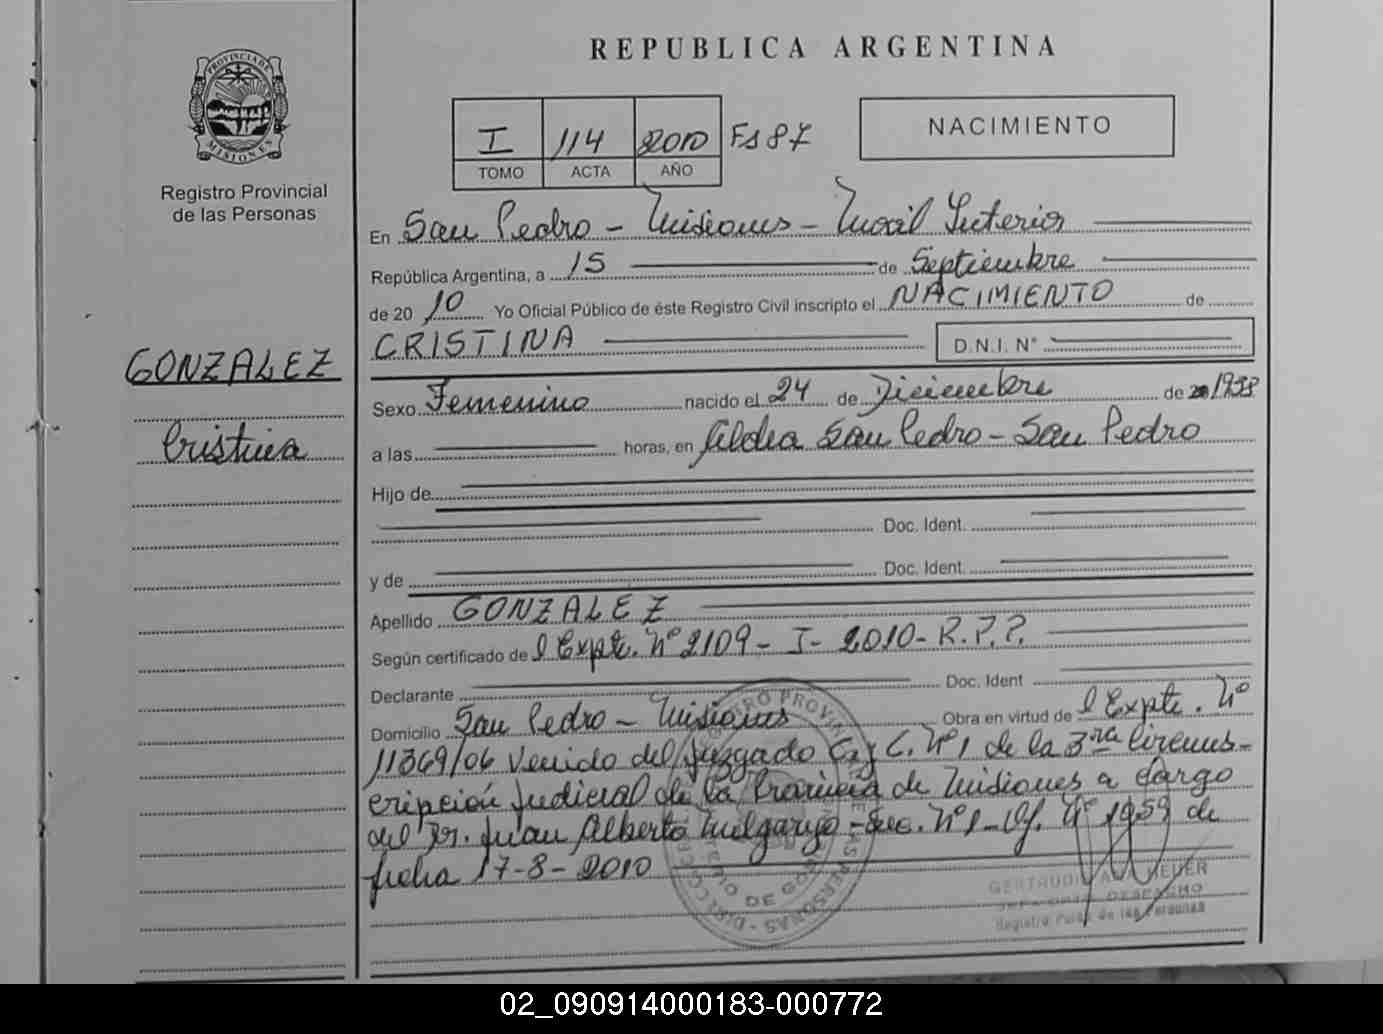 REPUBLICA ARGENTINA
PROVINCIA DE
MISIONES
Registro Provincial
de las Personas
I 114 2010 Fs 87
TOMO ACTA AÑO
NACIMIENTO
En San Pedro - Misiones - Movil Interior
República Argentina, a 15 de Septiembre
de 2010 Yo Oficial Público de éste Registro Civil inscripto el NACIMIENTO de
CRISTINA D.N.I. N°
GONZALEZ
Cristina
Sexo Femenino nacido el 24 de Diciembre de 20 1938
a las horas, en Aldea San Pedro - San Pedro
Hijo de
Doc. Ident.
y de Doc. Ident.
Apellido GONZALEZ
Según certificado de l Expte. N° 2109 - I - 2010 - R.P.P.
Declarante Doc. Ident
Domicilio San Pedro - Misiones Obra en virtud de l Expte. N°
11369/06 Venido del Juzgado C. y C. N° 1 de la 3ra Circuns-
cripción Judicial de la Provincia de Misiones a Cargo
del Dr. Juan Alberto - Sec. N° 1 - Of. N° 1959 de
fecha 17-8-2010
DESPACHO
Registro de las Personas
02_090914000183-000772